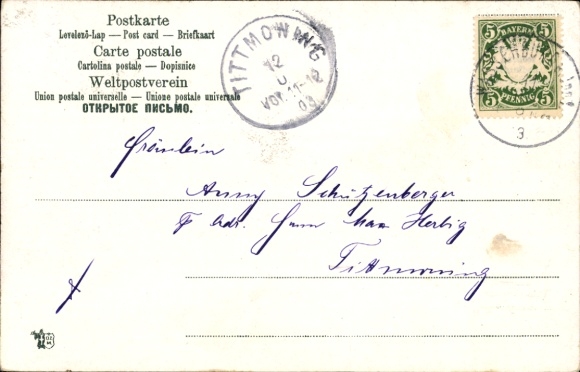 Postkarte
Levelező-Lap — Post card — Briefkaart
Carte postale
Cartolina postale — Dopisnice
Weltpostverein
Union postale universelle — Unione postale universale
ОТКРЫТОЕ ПИСЬМО.
TITTMONING
12
VOR. 11-12
03
5 BAYERN 5
5 PFENNIG 5
Fräulein
Anny Schützenberger
Adr. Herrn Max Herbig
Tittmoning